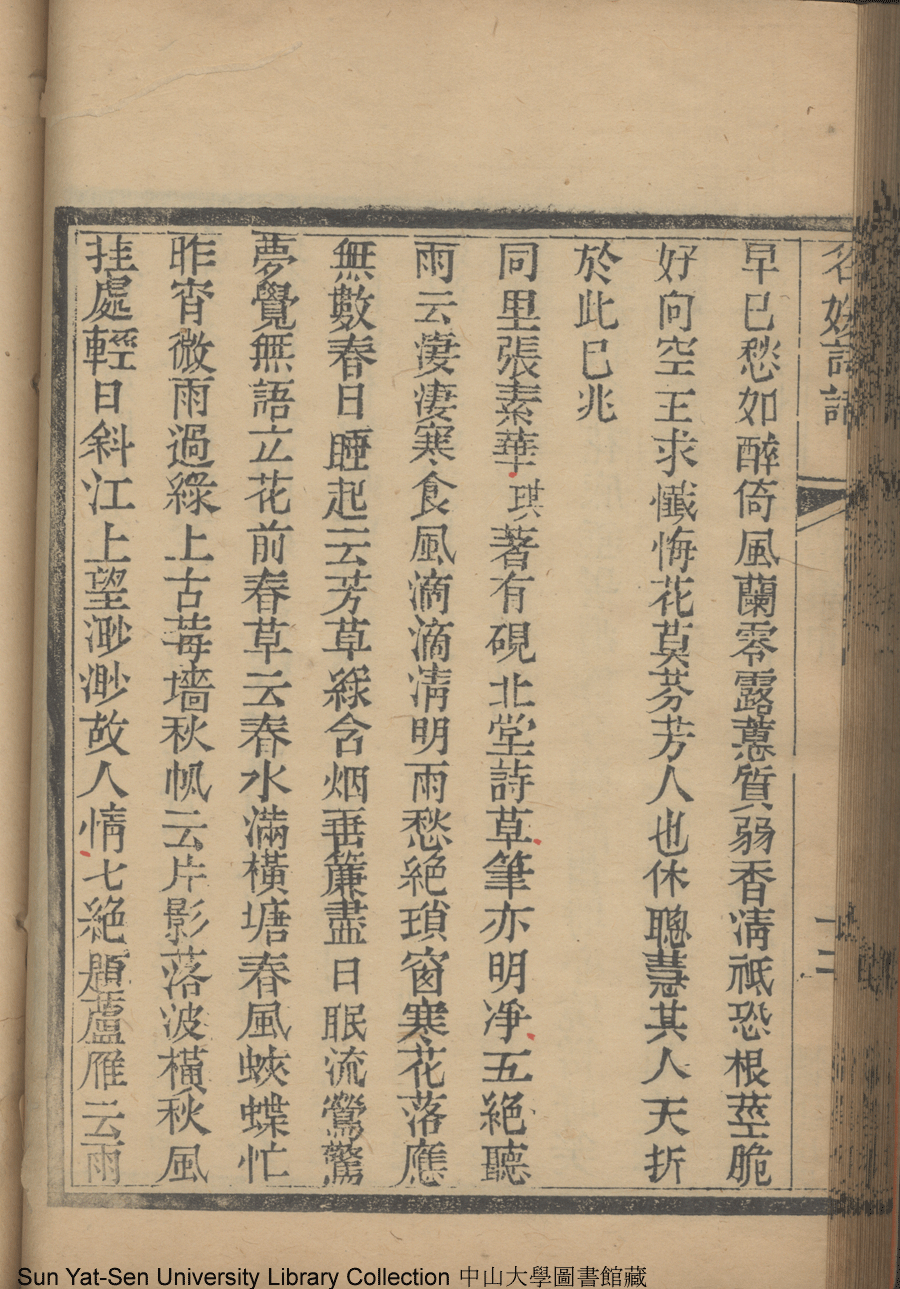 名媛詩話
十二
早已愁如醉倚風蘭零露蕙質弱香凄祗恐根莖脆
好向空王求懺悔花莫芬芳人也休聰慧其人夭折
於此已兆
同里張素華琪著有硯北堂詩草筆亦明净五絕聽
雨云凄凄寒食風滴滴凊明雨愁絕瑣窗寒花落應
無數春日睡起云芳草綠含烟垂簾盡日眠流鶯驚
夢覺無語立花前春草云春水滿橫塘春風蛺蝶忙
昨宵微雨過綠上古莓墻秋帆云片影落波橫秋風
挂處輕日斜江上望渺渺故人情七絕題蘆雁云雨
Sun Yat-Sen University Library Collection 中山大學圖書館藏